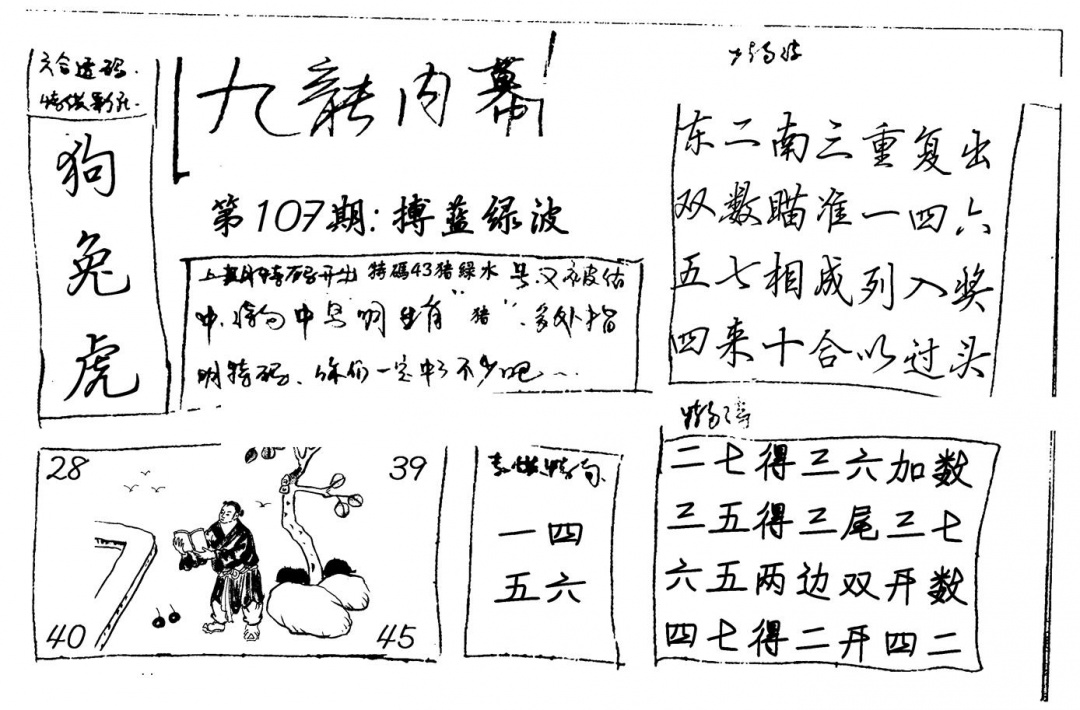 六合透码.
狗
兔
虎
九龍内幕
第107期:搏蓝绿波
上期特码开出 特碼43猪绿水 号又被估
中. 中号 有"猪". 多处指
明特码. 你们一定中了不少吧...
东二南三重复出
双数瞄准一四六
五七相成列入奖
四来十合以过头
28
39
40
45
一四
五六
二七得三六加数
三五得三尾三七
六五两边双开数
四七得二开四二